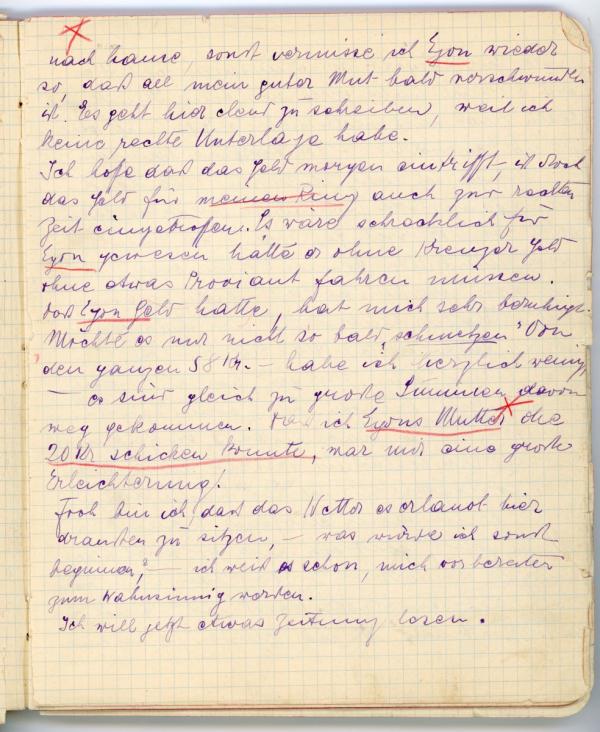 nach hause, sonst vermisse ich Egon wieder
so, daß all mein guter Mut bald verschwunden
ist. Es geht hier elend zu schreiben, weil ich
keine rechte Unterlage habe.
Ich hoffe daß das Geld morgen eintrifft, ist doch
das Geld für meinen Ring auch zur rechten
Zeit eingetroffen. Es wäre schrecklich für
Egon gewesen hätte er ohne Kreuzer Geld
ohne etwas Proviant fahren müssen.
Daß Egon Geld hatte, hat mich sehr beruhigt.
Möchte es nur nicht so bald „schmelzen" Von
den ganzen 58 Kr. – habe ich herzlich wenig,
– es sind gleich zu große Summen davon
weg gekommen. Daß ich Egons Mutter die
20 Kr schicken konnte, war mir eine große
Erleichterung!
Froh bin ich, daß das Wetter es erlaubt hier
draußen zu sitzen, – was würde ich sonst
beginnen?, – ich weiß es schon, mich vorbereiten
zum Wahnsinnig werden.
Ich will jetzt etwas Zeitung lesen.